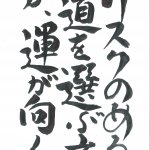 リスクのある
道を選ぶ方
が、運が向く